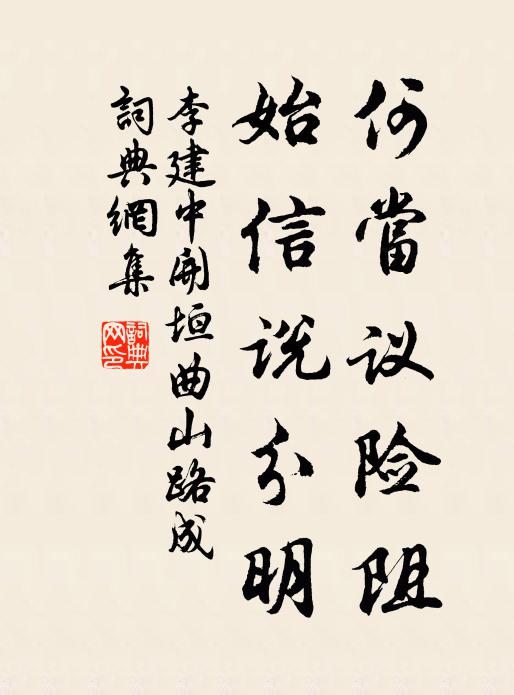 何當议险阻
始信说分明
李建中開垣曲山路成
詞典網集
詞典
网印